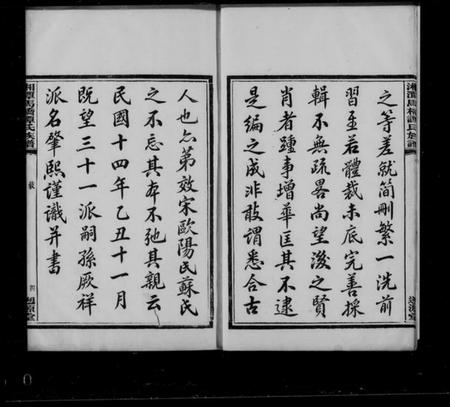 之等差就簡刪繁一洗前
習至若體裁未底完善採
輯不無疏畧尚望後之賢
肖者踵事增華匡其不逮
是編之成非敢謂悉合古
人也亦第效宋歐陽氏蘇氏
之不忘其本不弛其親云
民國十四年乙丑十一月
既望三十一派嗣孫厥祥
派名肇熙謹識并書